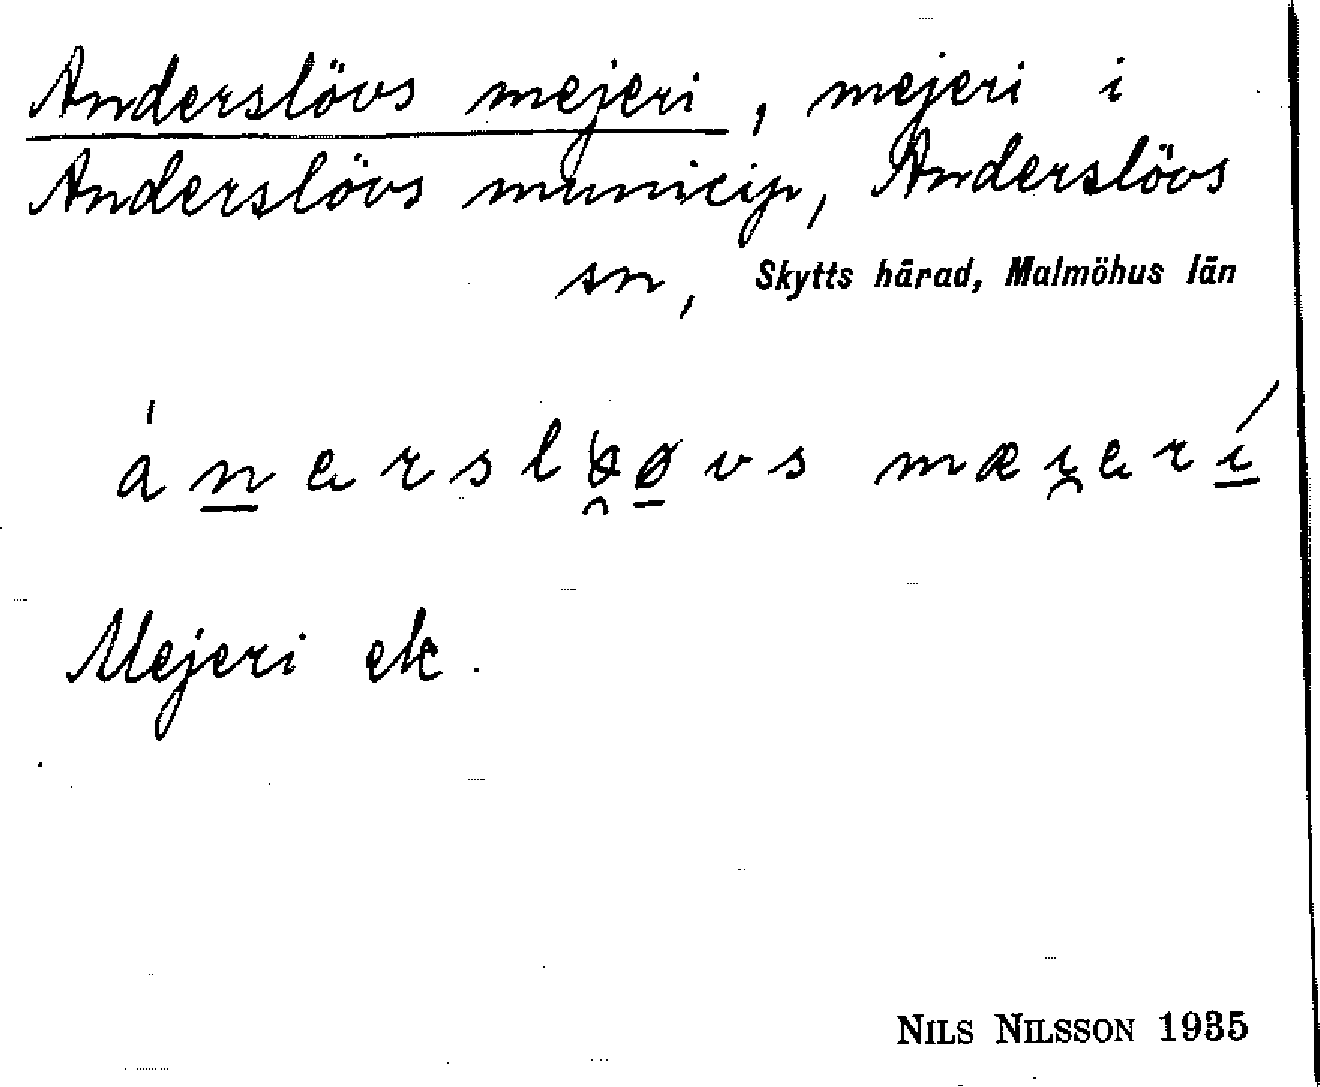 Anderslövs mejeri, mejeri i
Anderslövs municip, Anderslövs
sn, Skytts härad, Malmöhus län
mæi̯erí
Mejeri ek.
NILS NILSSON 1935